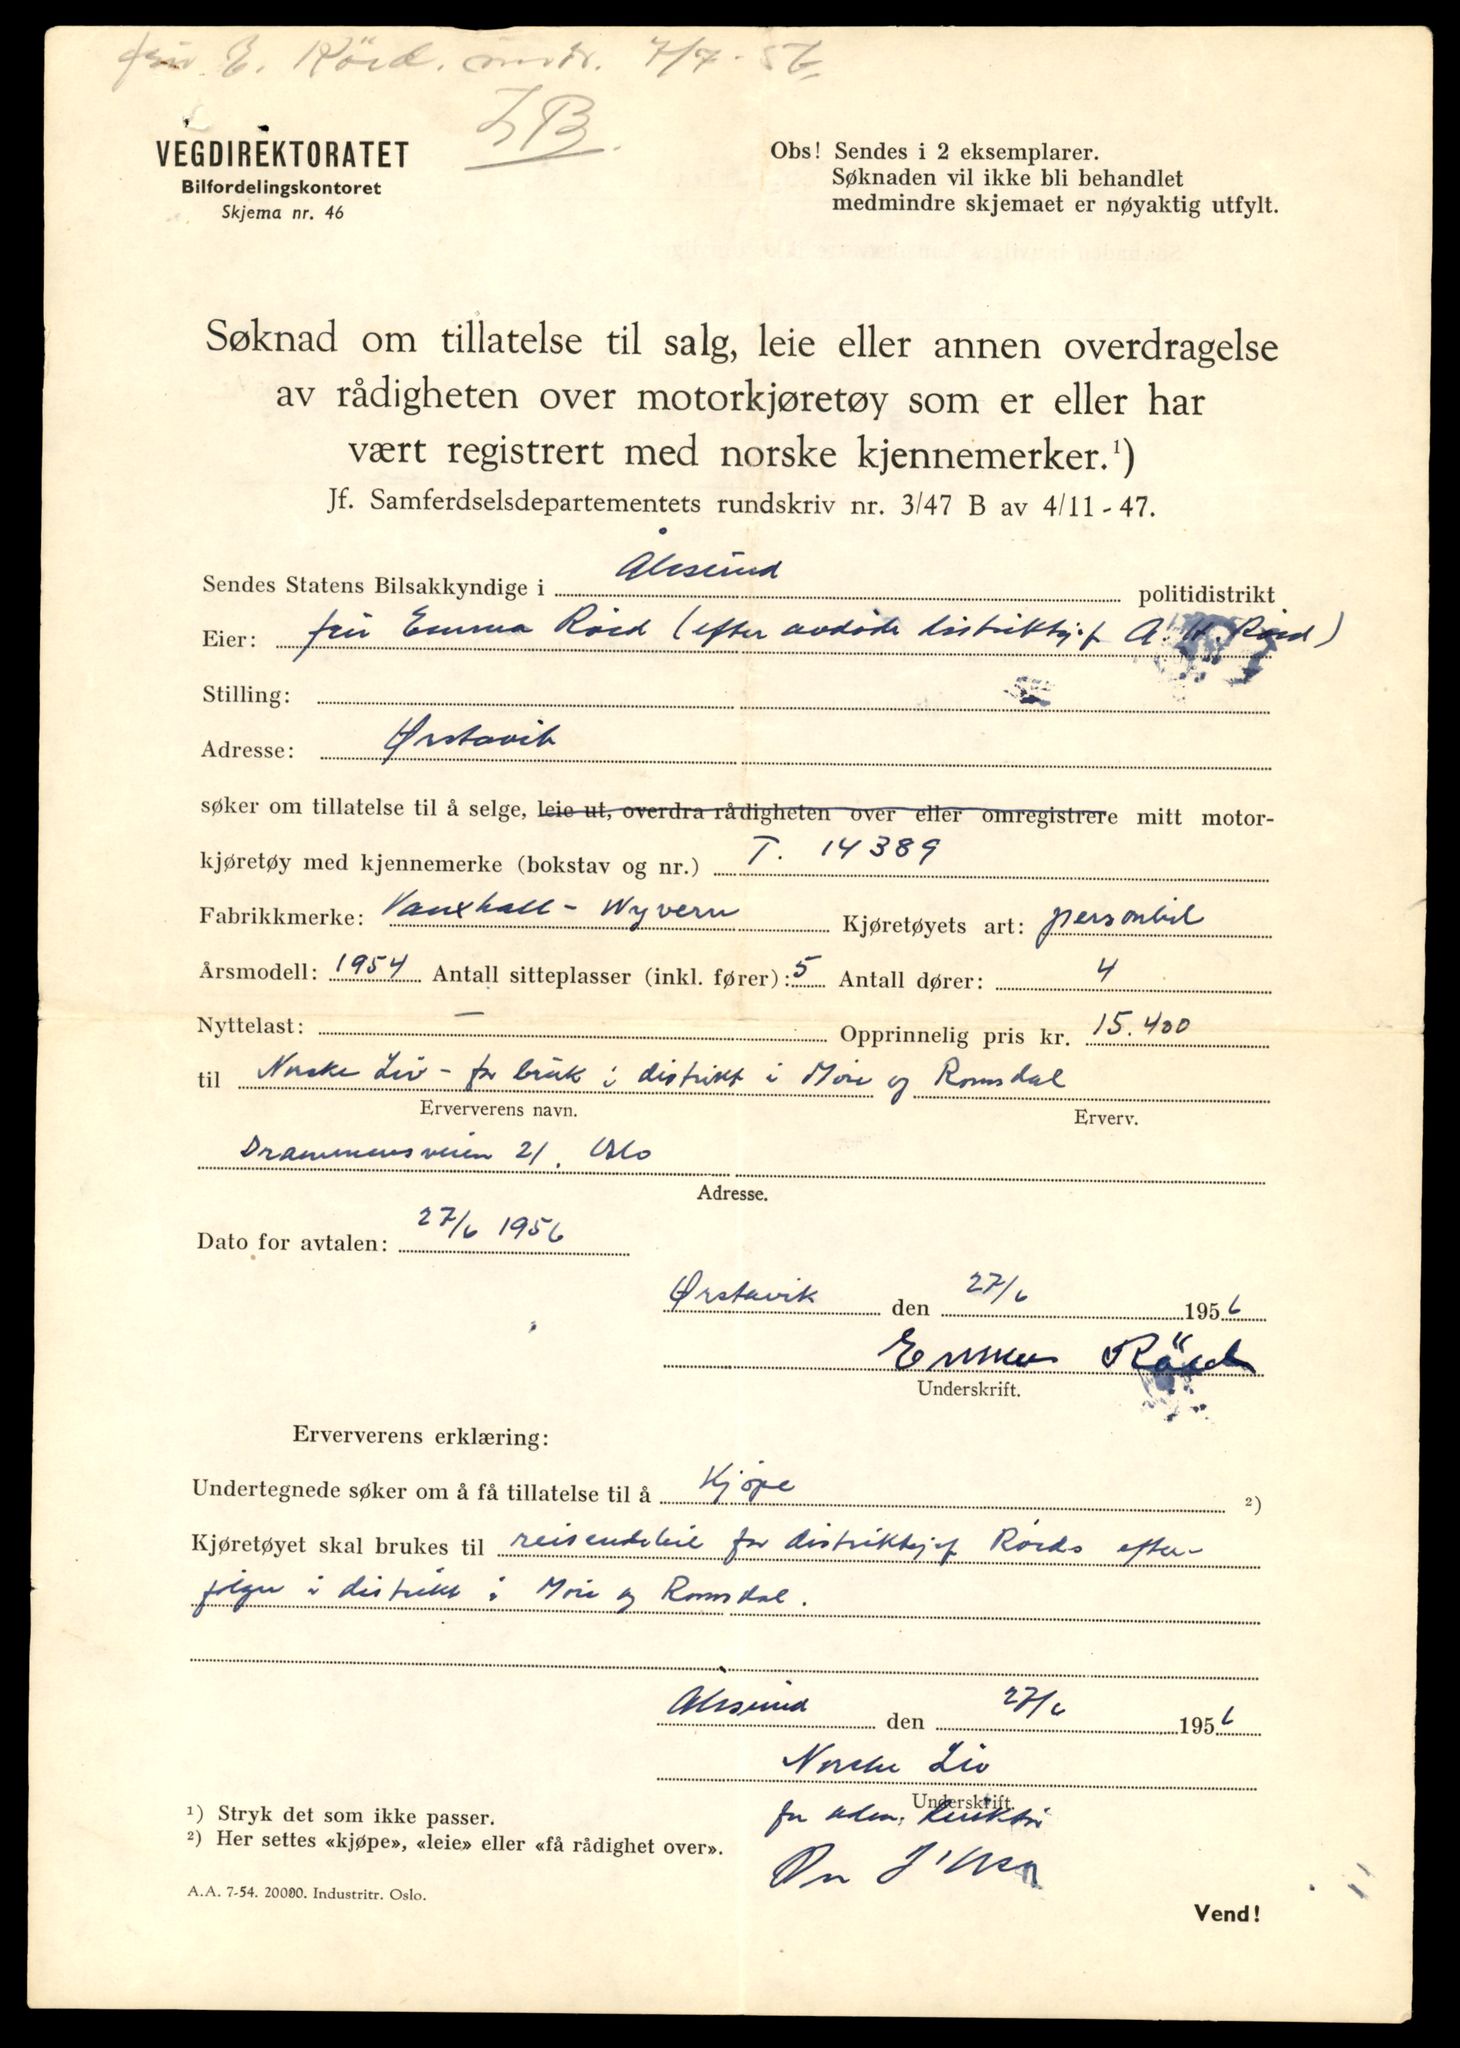 fru E. Röed. omtr. 7/7-56
VEGDIREKTORATET
Bilfordelingskontoret
Skjema nr. 46
Obs! Sendes i 2 eksemplarer.
Søknaden vil ikke bli behandlet
medmindre skjemaet er nøyaktig utfylt.
Søknad om tillatelse til salg, leie eller annen overdragelse
av rådigheten over motorkjøretøy som er eller har
vært registrert med norske kjennemerker.¹)
Jf. Samferdselsdepartementets rundskriv nr. 3/47 B av 4/11-47.
Sendes Statens Bilsakkyndige i Ålesund politidistrikt
Eier: fru Emma Röed (efter avdøde distriktsjef A. H. Röed)
Stilling:
Adresse: Ørstavik
søker om tillatelse til å selge, leie ut, overdra rådigheten over eller omregistrere mitt motor-
kjøretøy med kjennemerke (bokstav og nr.) T. 14389
Fabrikkmerke: Vauxhall - Wyvern Kjøretøyets art: personbil
Årsmodell: 1954 Antall sitteplasser (inkl. fører): 5 Antall dører: 4
Nyttelast: — Opprinnelig pris kr. 15.400
til Norske Liv - for bruk i distrikt i Møre og Romsdal
Erververens navn. Erverv.
Drammensveien 21. Oslo
Adresse.
Dato for avtalen: 27/6 1956
Ørstavik den 27/6 1956
Emma Röed
Underskrift.
Erververens erklæring:
Undertegnede søker om å få tillatelse til å kjøpe ²)
Kjøretøyet skal brukes til reisendebil for distriktsjef Röeds efter-
følger i distrikt i Møre og Romsdal.
Ålesund den 27/6 1956
Norske Liv
Underskrift.
for adm. direktør
¹) Stryk det som ikke passer.
²) Her settes «kjøpe», «leie» eller «få rådighet over».
A.A. 7-54. 20000. Industritr. Oslo.
Vend!